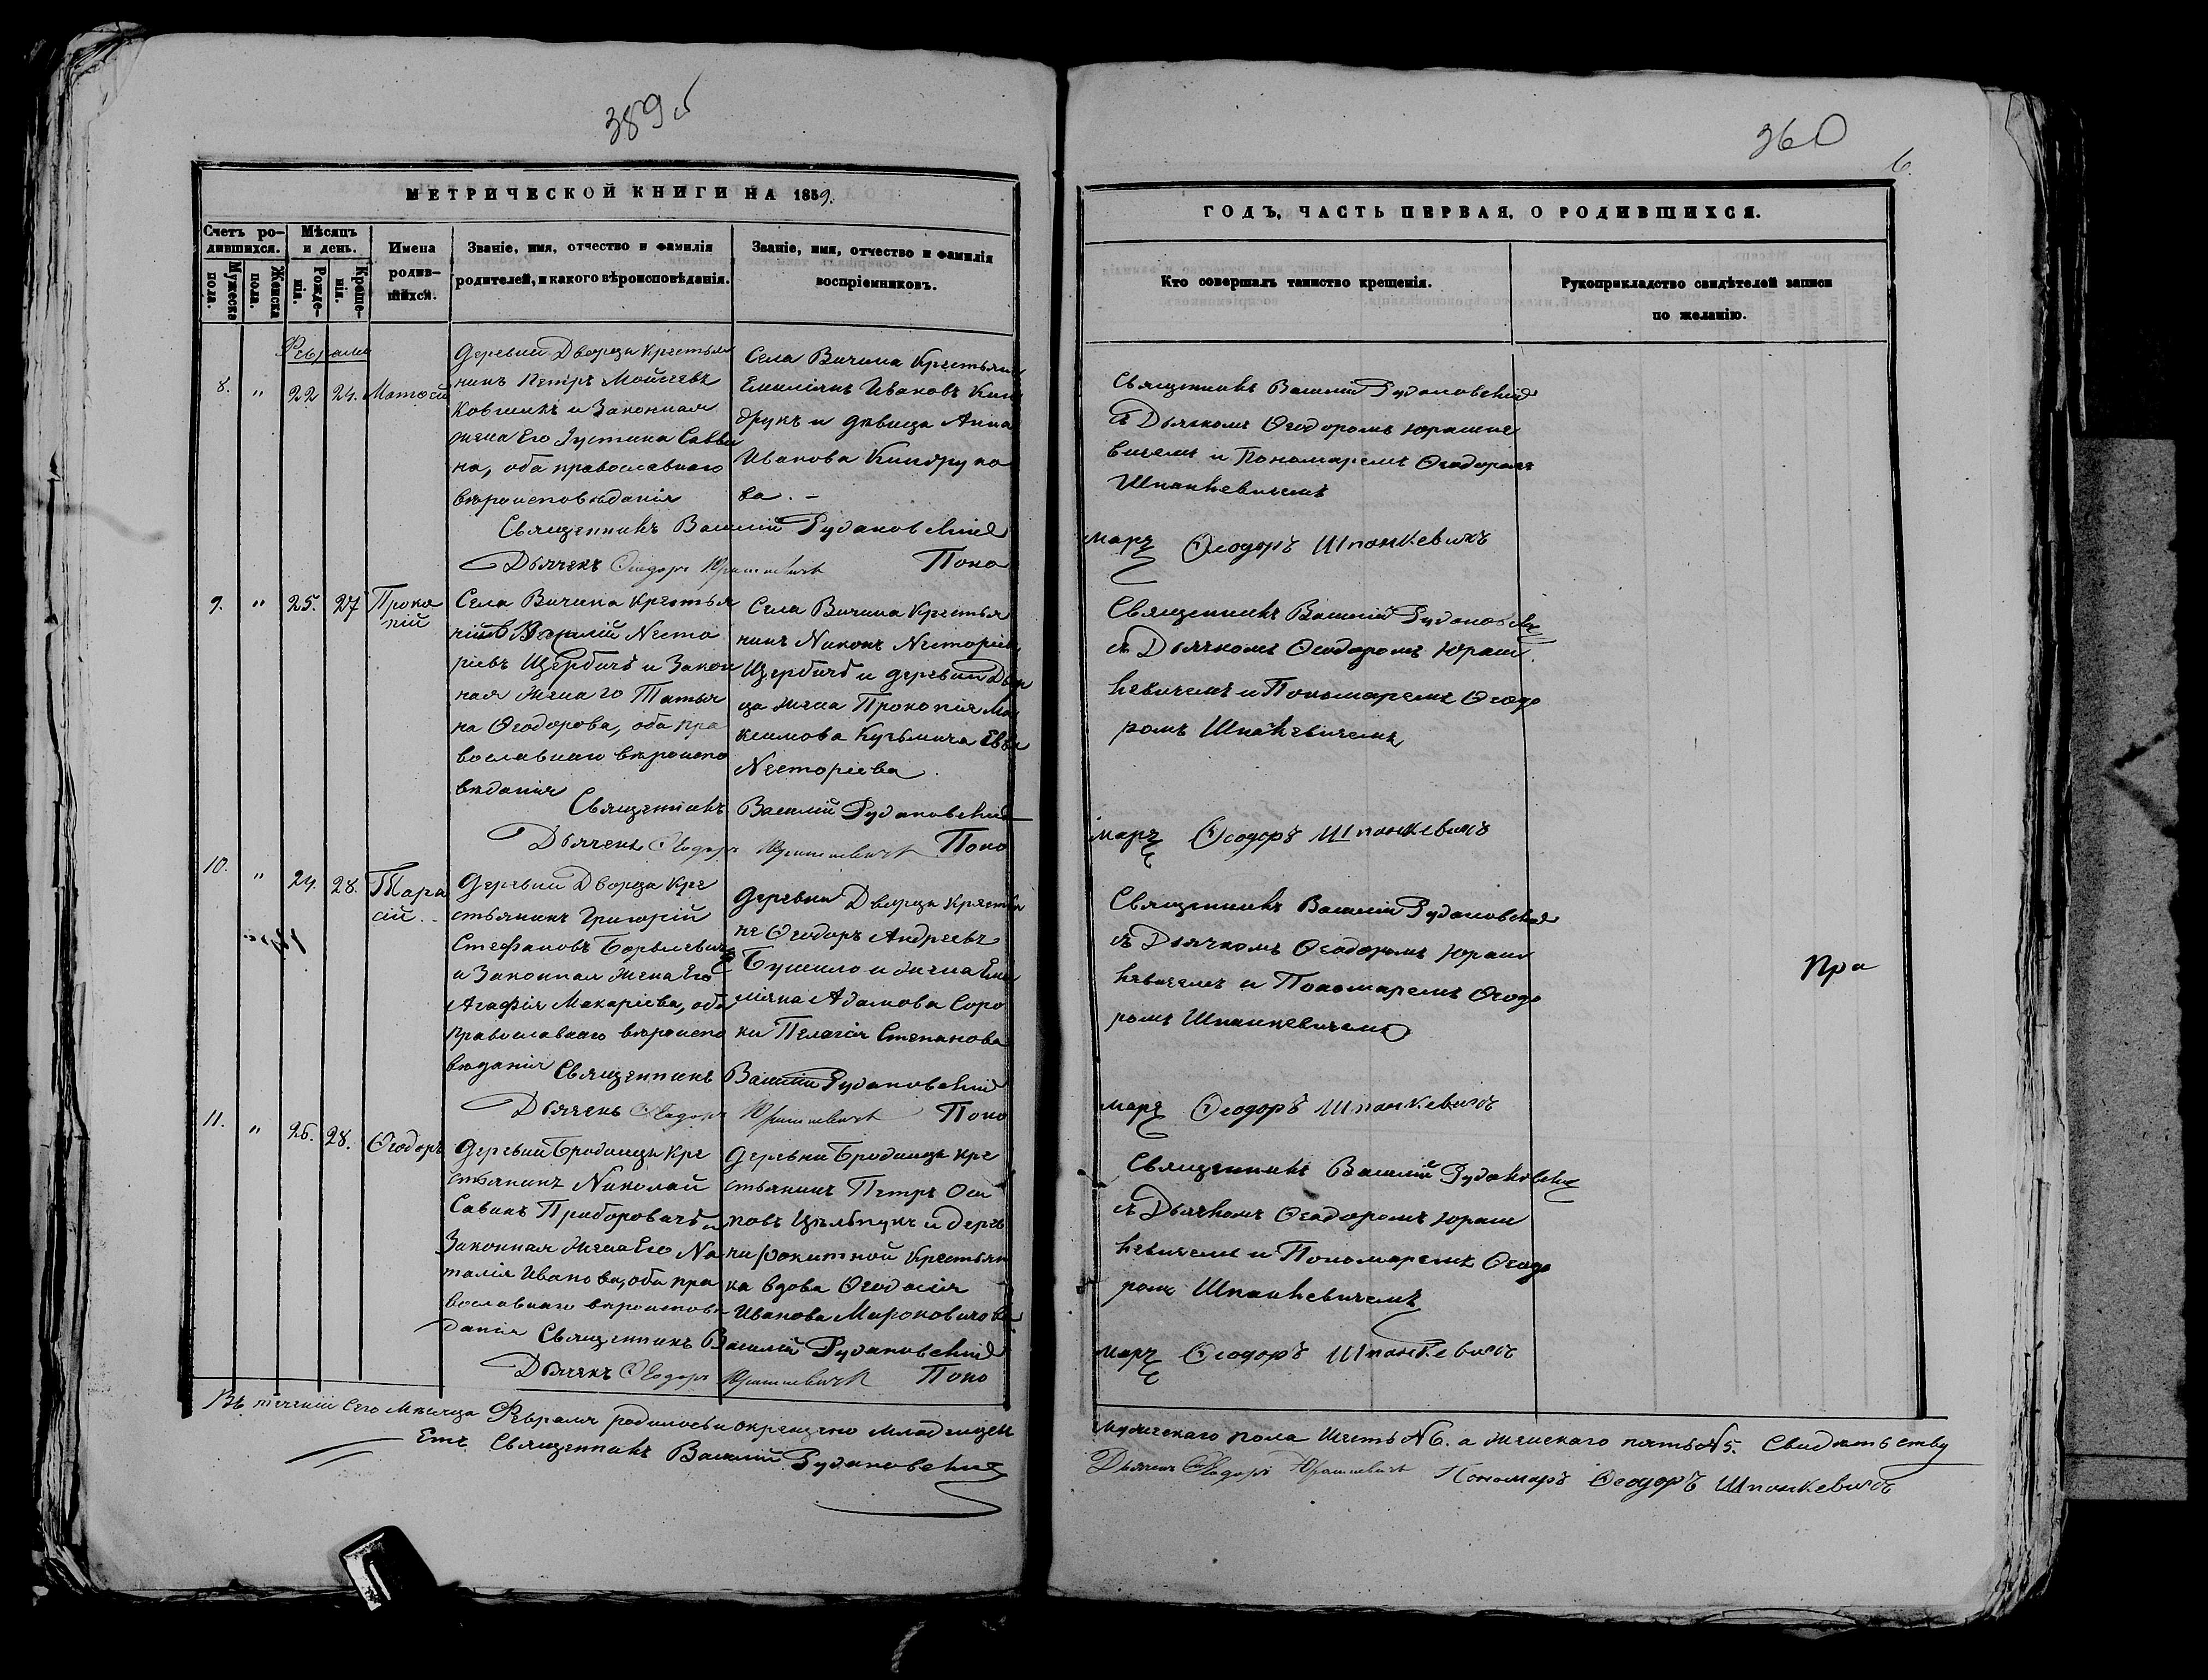 389 б
МЕТРИЧЕСКОЙ КНИГИ НА 1859.
Счетъ ро-
дившихся.
Мужеска
пола.
Женска
пола.
Мѣсяцъ
и день.
Рожде-
нія.
Креще-
нія.
Имена
родив-
шихся.
Званіе, имя, отчество и фамилія
родителей, и какого вѣроисповѣданія.
Званіе, имя, отчество и фамилія
воспріемниковъ.
Февраль
8. " 22 24. Матѳей
Деревни Дворца крестья
нинъ Петръ Мойсеевъ
Ковшикъ и Законная
жена Его Іустина Савви
на, оба православнаго
вѣроисповѣданія
Села Вичина Крестьяни
Емиліянъ Ивановъ Кин
друкъ и девица Анна
Иванова Киндруко
ва. –
Священникъ Василій Рудаковскій
Дьячекъ Ѳеодоръ Юрашкевичъ Поно
9. " 25. 27 Проко
пій
Села Вичина Крестья
нинъ Василій Несто
ріевъ Щербичъ и Закон
ная жена го Татья
на Ѳеодорова, оба пра
вославнаго вѣроиспо
вѣданія
Села Вичина Крестья
нинъ Никонъ Несторіевъ
Щербичъ и деревни Двор
ца жена Прокопія Ма
ксимова Кузьмича Евва
Несторіева.
Священникъ Василій Рудаковскій
Дьячекъ Ѳеодоръ Юрашкевичъ Поно
10. " 24. 28. Тара
сій.
Деревни Дворца Кре
стьянинъ Григорій
Стефановъ Борысевичъ
и Законная жена Его
Агафія Макаріева, оба
православнаго вѣроиспо
вѣданія
Деревни Дворца Крестья
не Ѳеодоръ Андреевъ
Бушило и жена Еми
ліяна Адамова Соро
ки Пелагія Степанова
Священникъ Василій Рудаковскій
Дьячекъ Ѳеодоръ Юрашкевичъ Поно
11. " 26. 28. Ѳеодоръ
Деревни Бродницы Кре
стьянинъ Николай
Савинъ Приборовичъ и
Законная жена Его На
талія Иванова, оба пра
вославнаго вѣроисповѣ
данія
Деревни Бродницы кре
стьянинъ Петръ Оси
повъ Цельпукъ и дерев
ни Рокитной Крестьян
ка вдова Ѳеодосія
Иванова Мироновичова
Священникъ Василій Рудаковскій
Дьячекъ Ѳеодоръ Юрашкевичъ Поно
Въ теченіи Сего Мѣсяца Февраля родилось и окрещено младенцев
Священникъ Василій Рудаковскій
360
6
ГОДЪ, ЧАСТЬ ПЕРВАЯ, О РОДИВШИХСЯ.
Кто совершалъ таинство крещенія.
Рукоприкладство свидѣтелей записи
по желанію.
Священникъ Василій Рудаковскій
съ Дьячкомъ Ѳеодоромъ Юрашке
вичемъ и Пономаремъ Ѳеодоромъ
Шпанкевичемъ
марь Ѳеодоръ Шпанкевичъ
Священникъ Василій Рудаковскій
съ Дьячкомъ Ѳеодоромъ Юраш
кевичемъ и Пономаремъ Ѳеодо
ромъ Шпанкевичемъ
марь Ѳеодоръ Шпанкевичъ
Священникъ Василій Рудаковскій
съ Дьячкомъ Ѳеодоромъ Юраш
кевичемъ и Пономаремъ Ѳеодо
ромъ Шпанкевичемъ
Пра
марь Ѳеодоръ Шпанкевичъ
Священникъ Василій Рудаковскій
съ Дьячкомъ Ѳеодоромъ Юраш
кевичемъ и Пономаремъ Ѳеодо
ромъ Шпанкевичемъ
марь Ѳеодоръ Шпанкевичъ
мужескаго пола Шесть N6. а женскаго пять N5. Свидѣтельству
Дьячекъ Ѳеодоръ Юрашкевичъ Пономарь Ѳеодоръ Шпанкевичъ